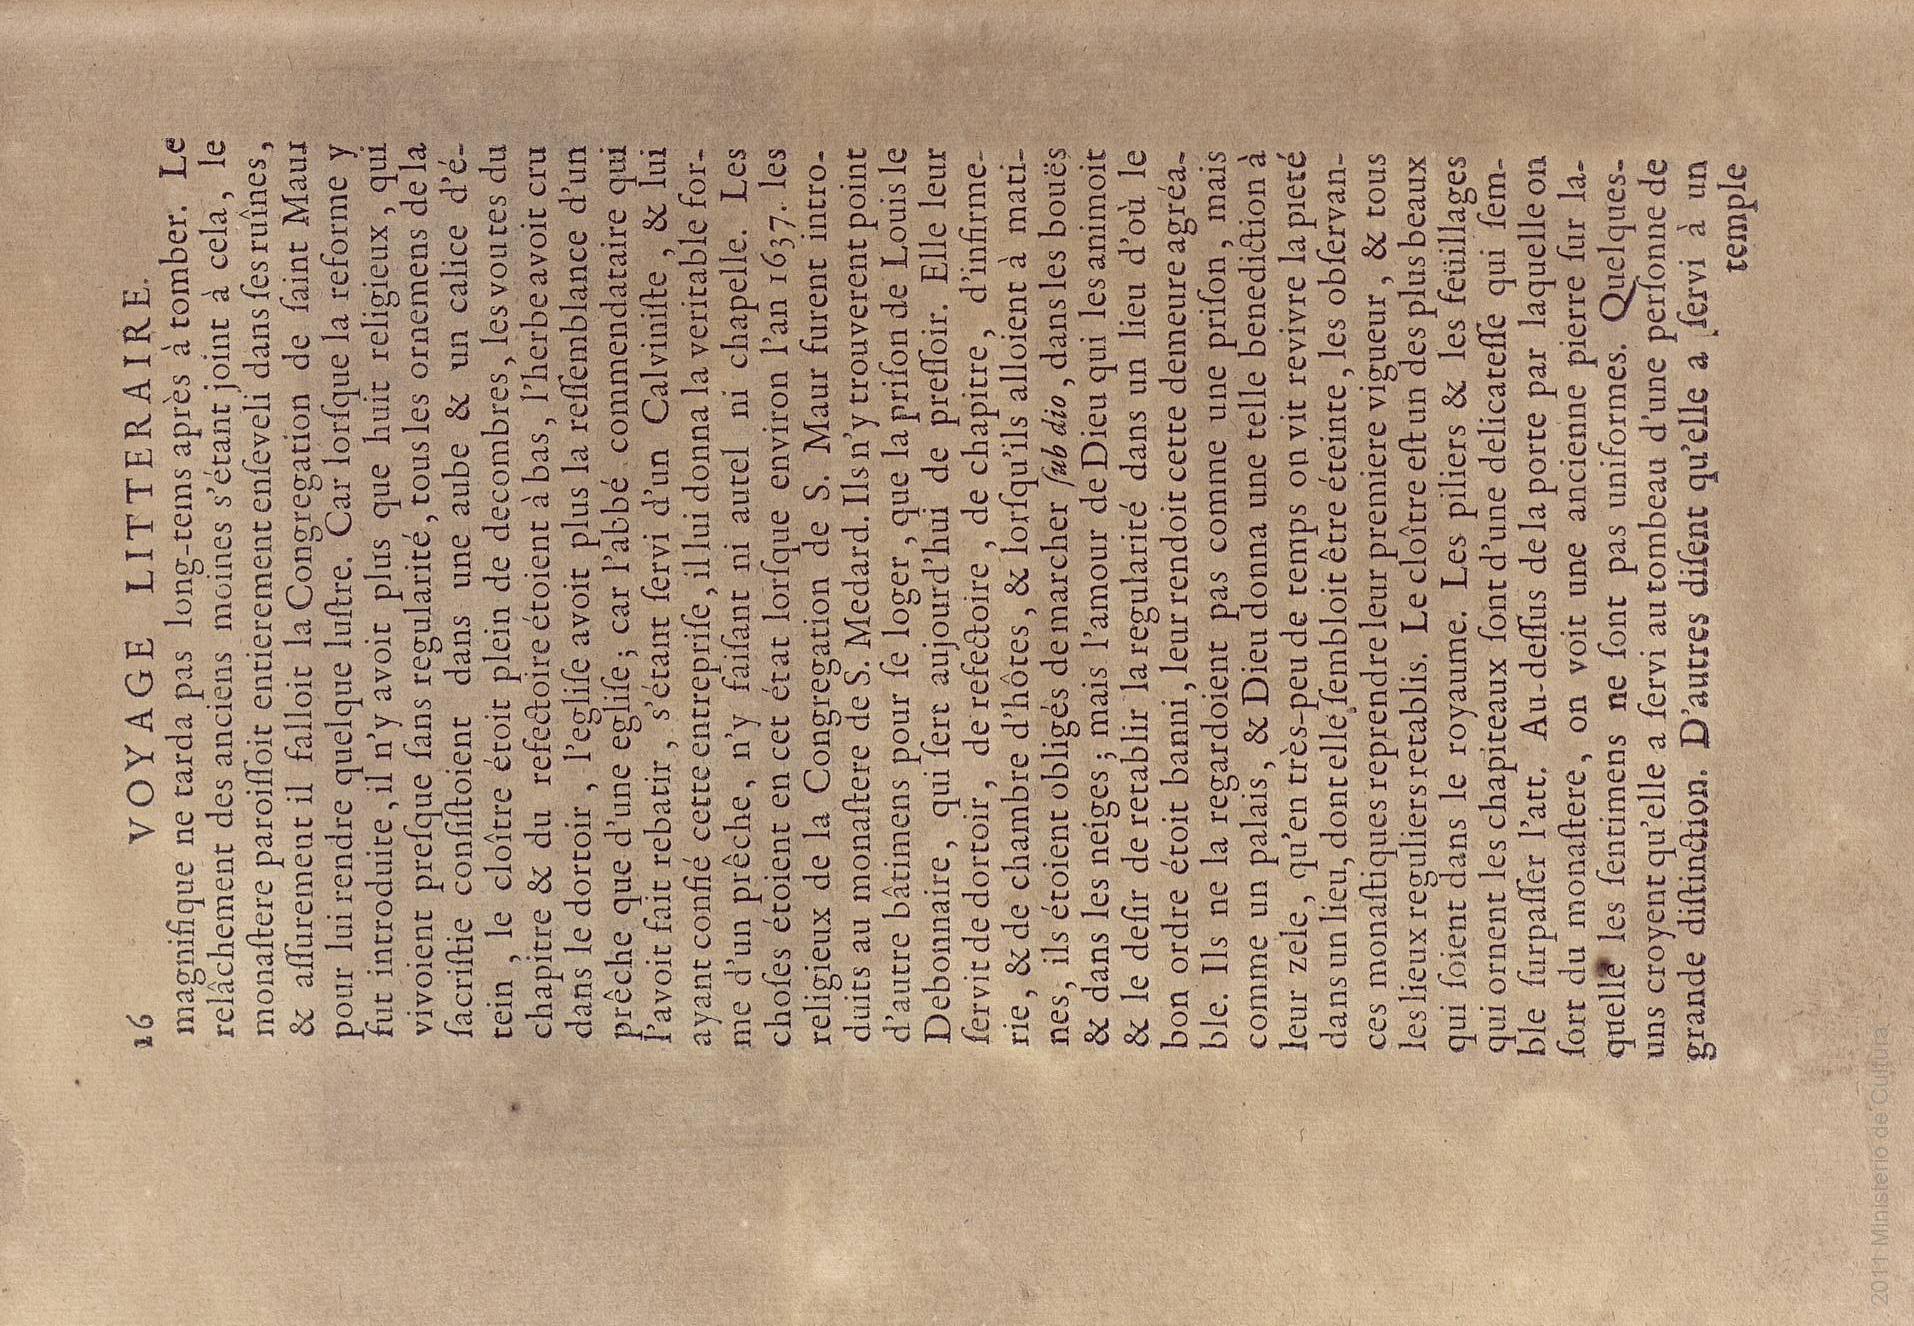 16 VOYAGE LITTERAIRE.
magnifique ne tarda pas long-tems après à tomber. Le
relâchement des anciens moines s'étant joint à cela, le
monaſtere paroiſſoit entierement enſeveli dans ſes ruînes,
& aſſurement il falloit la Congregation de ſaint Maur
pour lui rendre quelque luſtre. Car lorſque la reforme y
fut introduite, il n'y avoit plus que huit religieux, qui
vivoient preſque ſans regularité, tous les ornemens de la
ſacriſtie conſiſtoient dans une aube & un calice d'é-
tein, le cloître étoit plein de decombres, les voutes du
chapitre & du refectoire étoient à bas, l'herbe avoit cru
dans le dortoir, l'egliſe avoit plus la reſſemblance d'un
prêche que d'une egliſe; car l'abbé commendataire qui
l'avoit fait rebatir, s'étant ſervi d'un Calviniſte, & lui
ayant confié cette entrepriſe, il lui donna la veritable for-
me d'un prêche, n'y faiſant ni autel ni chapelle. Les
choſes étoient en cet état lorſque environ l'an 1637. les
religieux de la Congregation de S. Maur furent intro-
duits au monaſtere de S. Medard. Ils n'y trouverent point
d'autre bâtimens pour ſe loger, que la priſon de Louis le
Debonnaire, qui ſert aujourd'hui de preſſoir. Elle leur
ſervit de dortoir, de refectoire, de chapitre, d'infirme-
rie, & de chambre d'hôtes, & lorſqu'ils alloient à mati-
nes, ils étoient obligés de marcher ſub dio, dans les bouës
& dans les neiges; mais l'amour de Dieu qui les animoit
& le deſir de retablir la regularité dans un lieu d'où le
bon ordre étoit banni, leur rendoit cette demeure agréa-
ble. Ils ne la regardoient pas comme une priſon, mais
comme un palais, & Dieu donna une telle benediction à
leur zele, qu'en très-peu de temps on vit revivre la pieté
dans un lieu, dont elle ſembloit être éteinte, les obſervan-
ces monaſtiques reprendre leur premiere vigueur, & tous
les lieux reguliers retablis. Le cloître eſt un des plus beaux
qui ſoient dans le royaume. Les piliers & les feüillages
qui ornent les chapiteaux ſont d'une delicateſſe qui ſem-
ble ſurpaſſer l'att. Au-deſſus de la porte par laquelle on
ſort du monaſtere, on voit une ancienne pierre ſur la-
quelle les ſentimens ne ſont pas uniformes. Quelques-
uns croyent qu'elle a ſervi au tombeau d'une perſonne de
grande diſtinction. D'autres diſent qu'elle a ſervi à un
temple
2011 Ministerio de Cultura